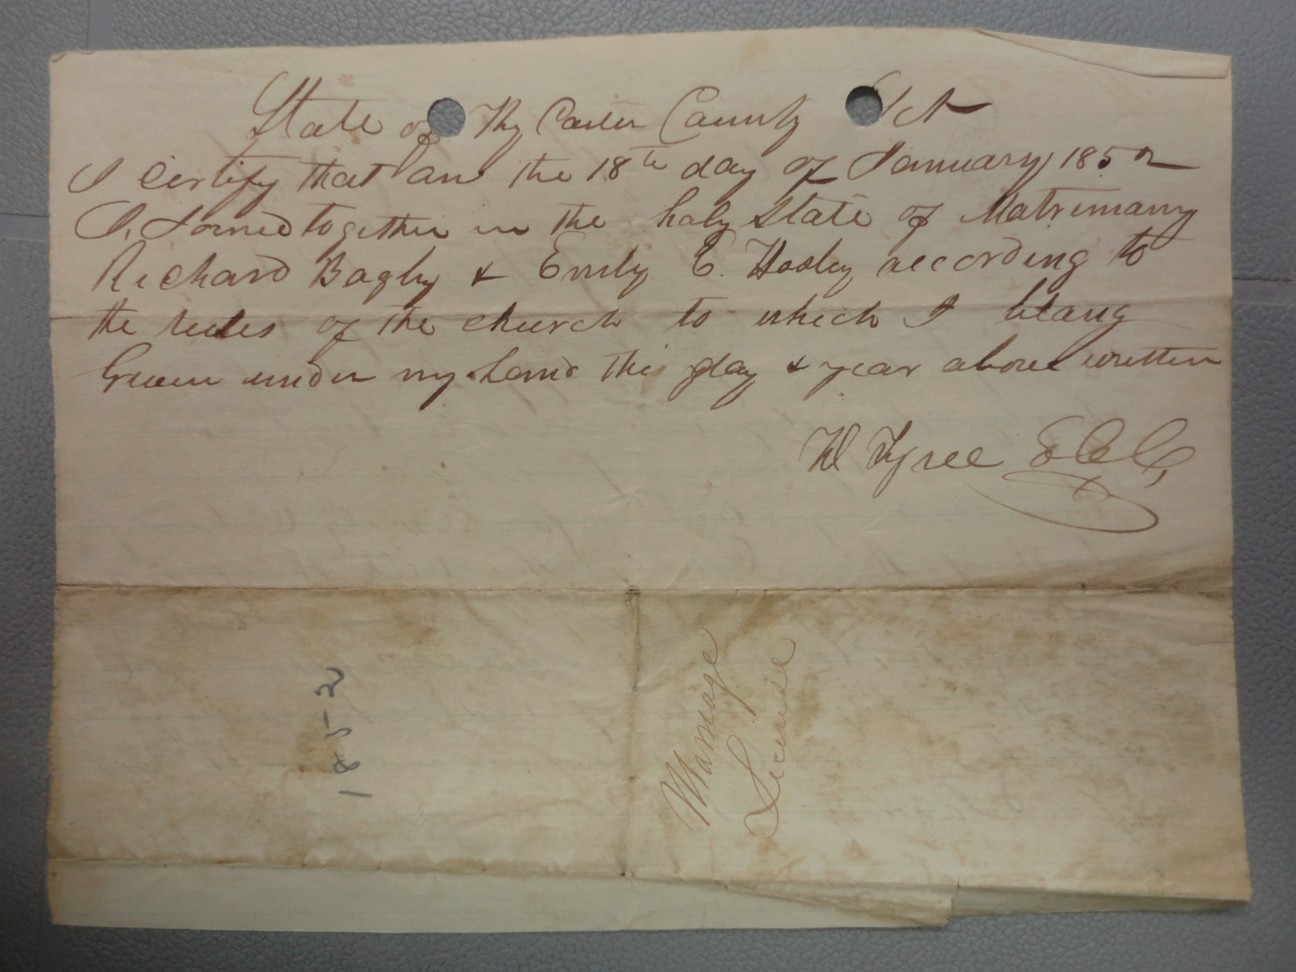 State of Ky Carter County Sct
I certify that on the 18th day of January 1852
I, Joined together in the holy State of Matrimony
Richard Bagby & Emily E. Hosley according to
the rules of the church to which I belong
Given under my hand this day & year above written
W Tyree
Marriage
License
1852